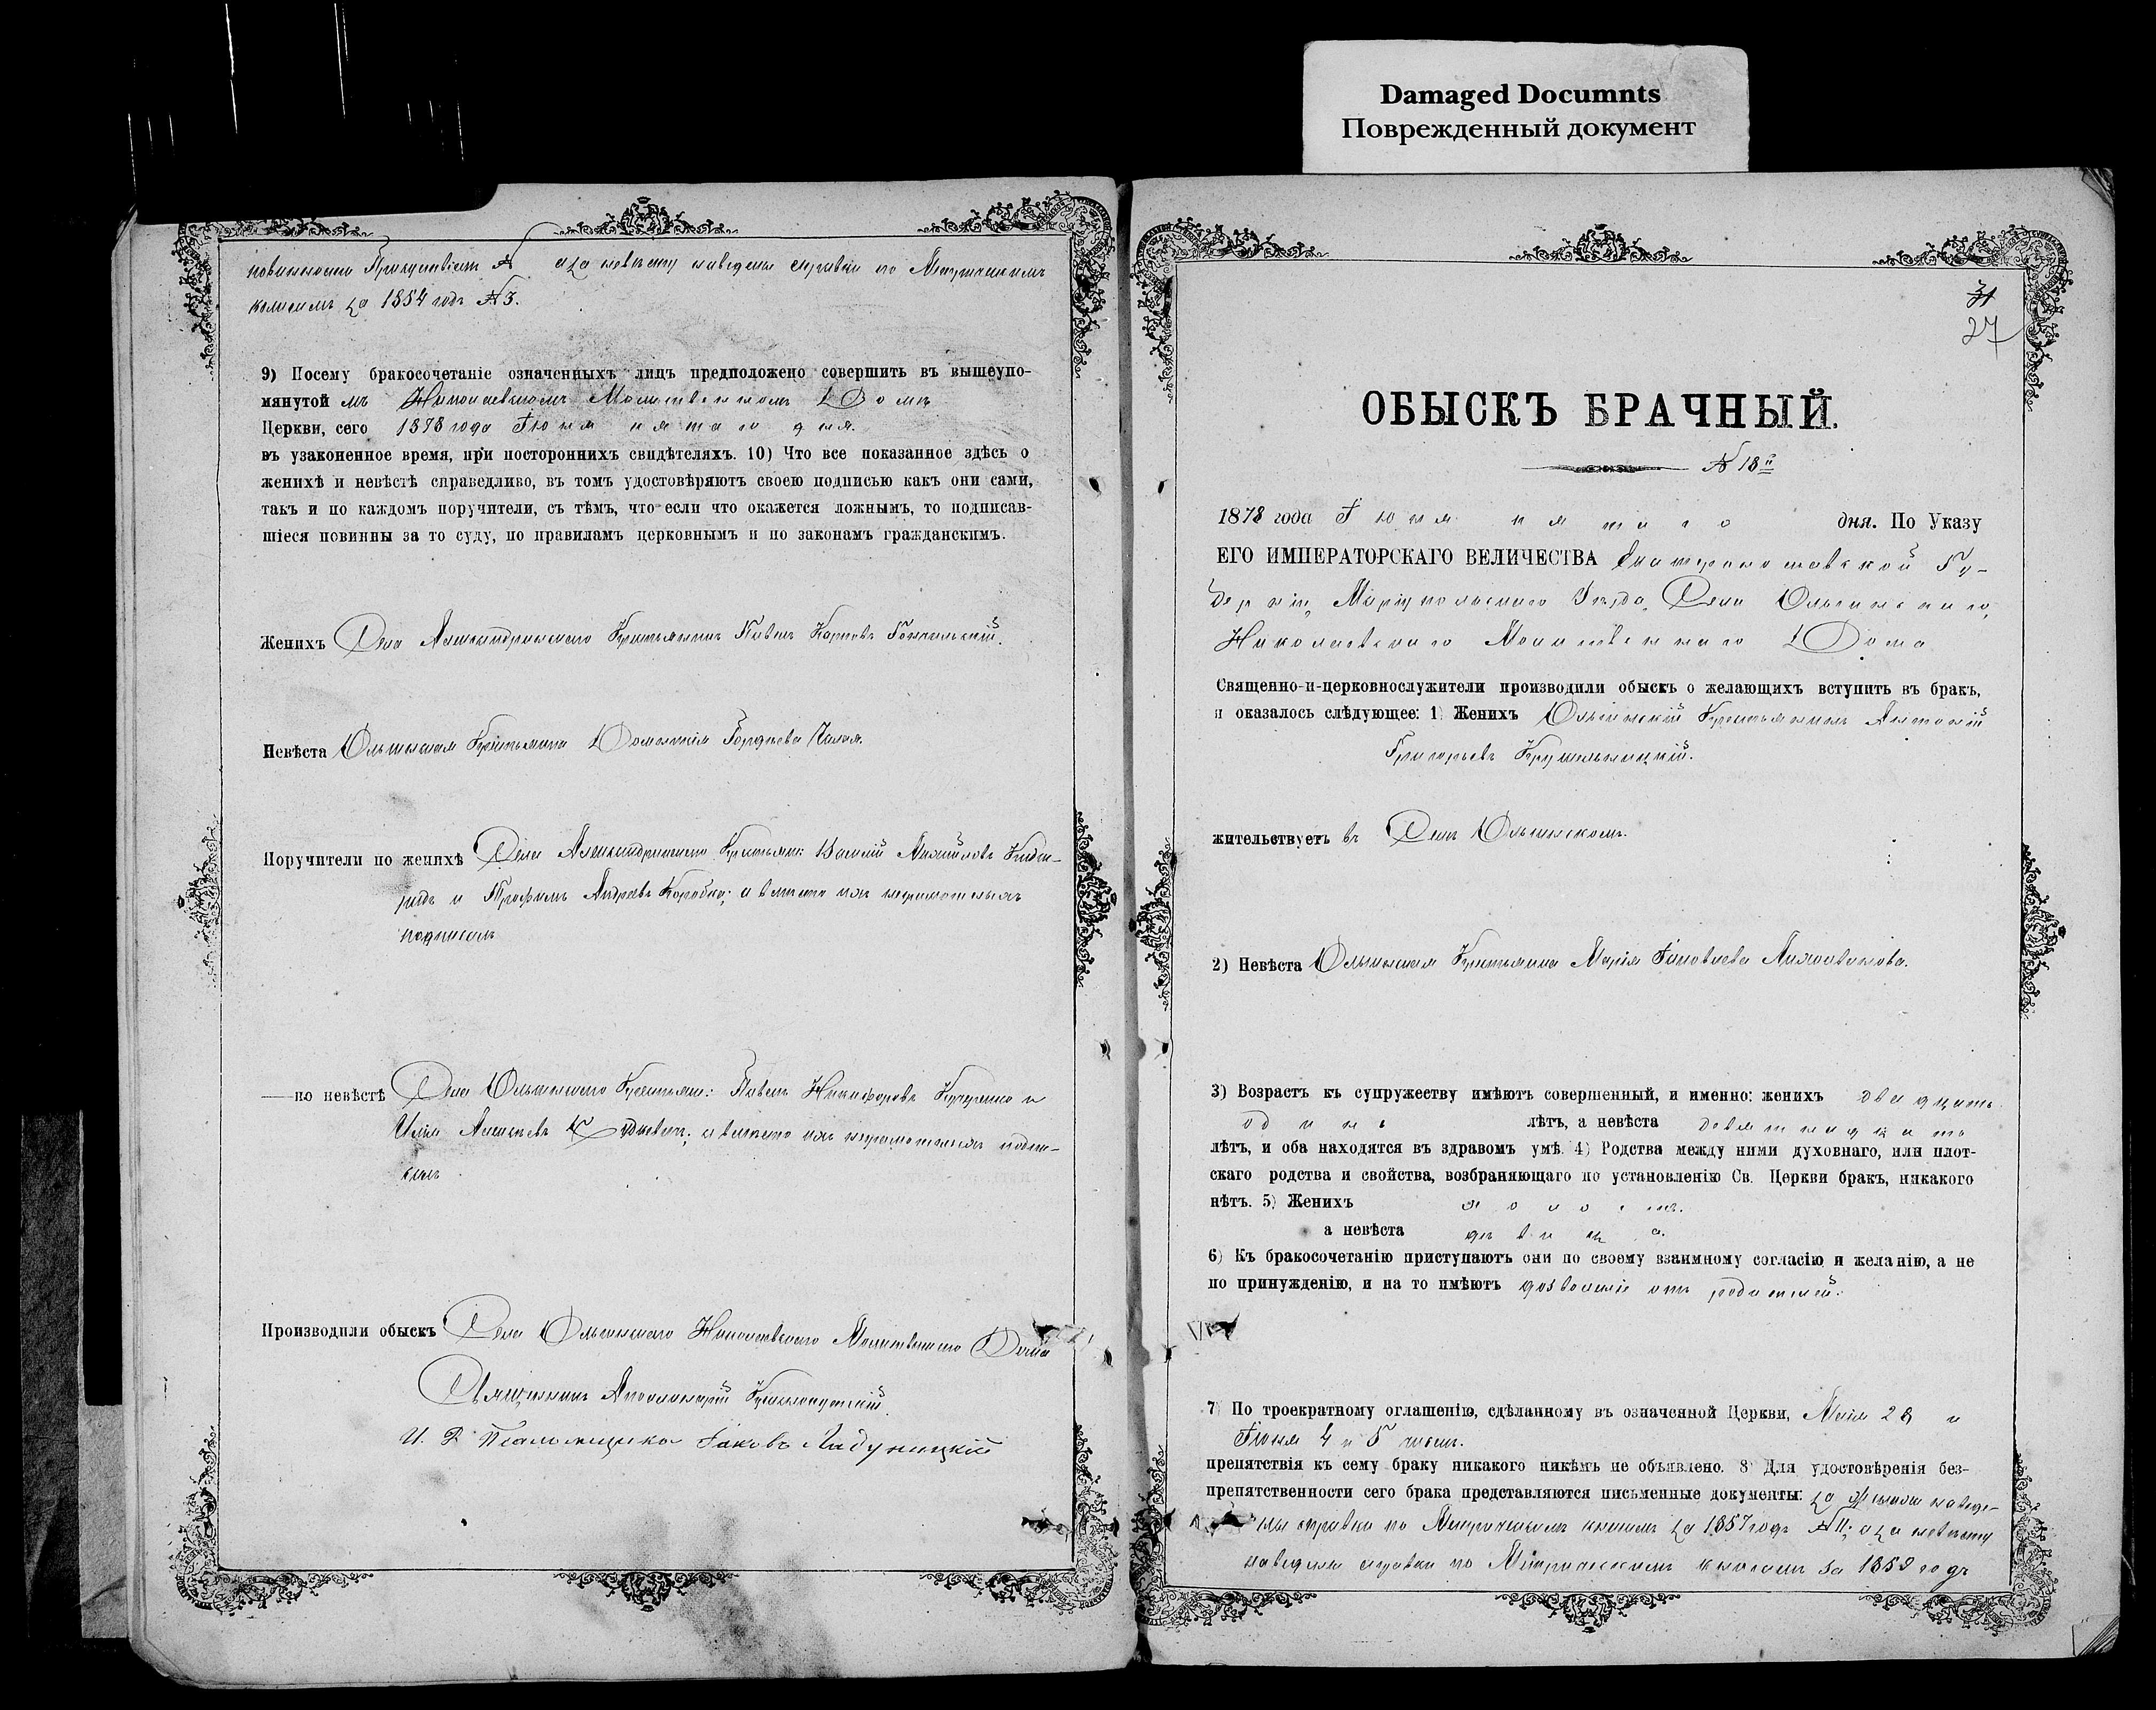 Damaged Documnts
Поврежденный документ
повинности Присутствіемъ № а за невѣсту наведены справки по Метрическимъ
книгамъ за 1854 годъ № 3.
9) Посему бракосочетаніе означенныхъ лицъ предположено совершить въ вышеупо-
мянутой мъ Николаевскомъ Молитвенномъ Домѣ
Церкви, сего 1878 года Іюня пятаго дня.
въ узаконенное время, при постороннихъ свидѣтеляхъ. 10) Что все показанное здѣсь о
женихѣ и невѣстѣ справедливо, въ томъ удостовѣряютъ своею подписью какъ они сами,
такъ и по каждомъ поручители, съ тѣмъ, что если что окажется ложнымъ, то подписав-
шіеся повинны за то суду, по правиламъ церковнымъ и по законамъ гражданскимъ.
Женихъ Села Александринскаго Крестьянинъ Павелъ Карповъ
Невѣста Ольгинская Крестьянка Домникія Гордѣева
Поручители по женихѣ Села Александринскаго Крестьяне:
и Трофимъ Андреевъ Коробка; а вмѣсто ихъ неграмотныхъ
подписалъ
— по невѣстѣ Села Ольгинскаго Крестьяне: Павелъ Никифоровъ и
Илія Алексѣевъ а вмѣсто ихъ неграмотныхъ подпи-
салъ
Производили обыскъ Села Ольгинскаго Николаевскаго Молитвеннаго Дома
Священникъ Аполлинарій
И. д. Псаломщика Іаковъ Ладуницкій
31
27
ОБЫСКЪ БРАЧНЫЙ.
№ 18й
1878 года Іюня пятаго дня. По Указу
ЕГО ИМПЕРАТОРСКАГО ВЕЛИЧЕСТВА Екатеринославской Гу-
берніи, Маріупольскаго Уѣзда, Села Ольгинскаго,
Николаевскаго Молитвеннаго Дома
Священно-и-церковнослужители производили обыскъ о желающихъ вступить въ бракъ,
и оказалось слѣдующее: 1) Женихъ Ольгинскій Крестьянинъ Антоній
Григорьевъ Крушельницкій.
жительствуетъ въ Селѣ Ольгинскомъ.
2) Невѣста Ольгинская Крестьянка Марія
3) Возрастъ къ супружеству имѣютъ совершенный, и именно: женихъ двадцать
одинъ лѣтъ, а невѣста девятнадцать
лѣтъ, и оба находятся въ здравомъ умѣ. 4) Родства между ними духовнаго, или плот-
скаго родства и свойства, возбраняющаго по установленію Св. Церкви бракъ, никакого
нѣтъ. 5) Женихъ холостъ.
а невѣста дѣвица.
6) Къ бракосочетанію приступаютъ они по своему взаимному согласію и желанію, а не
по принужденію, и на то имѣютъ дозволеніе отъ родителей.
7) По троекратному оглашенію, сдѣланному въ означенной Церкви, Маія 28 и
Іюня 4 и 5 чиселъ.
препятствія къ сему браку никакого никѣмъ не объявлено. 8) Для удостовѣренія без-
препятственности сего брака представляются письменные документы: за жениха наведе-
ны справки по Метрическимъ книгамъ за 1857 годъ № 11; а за невѣсту
наведены справки по Метрическимъ книгамъ за 1859 годъ